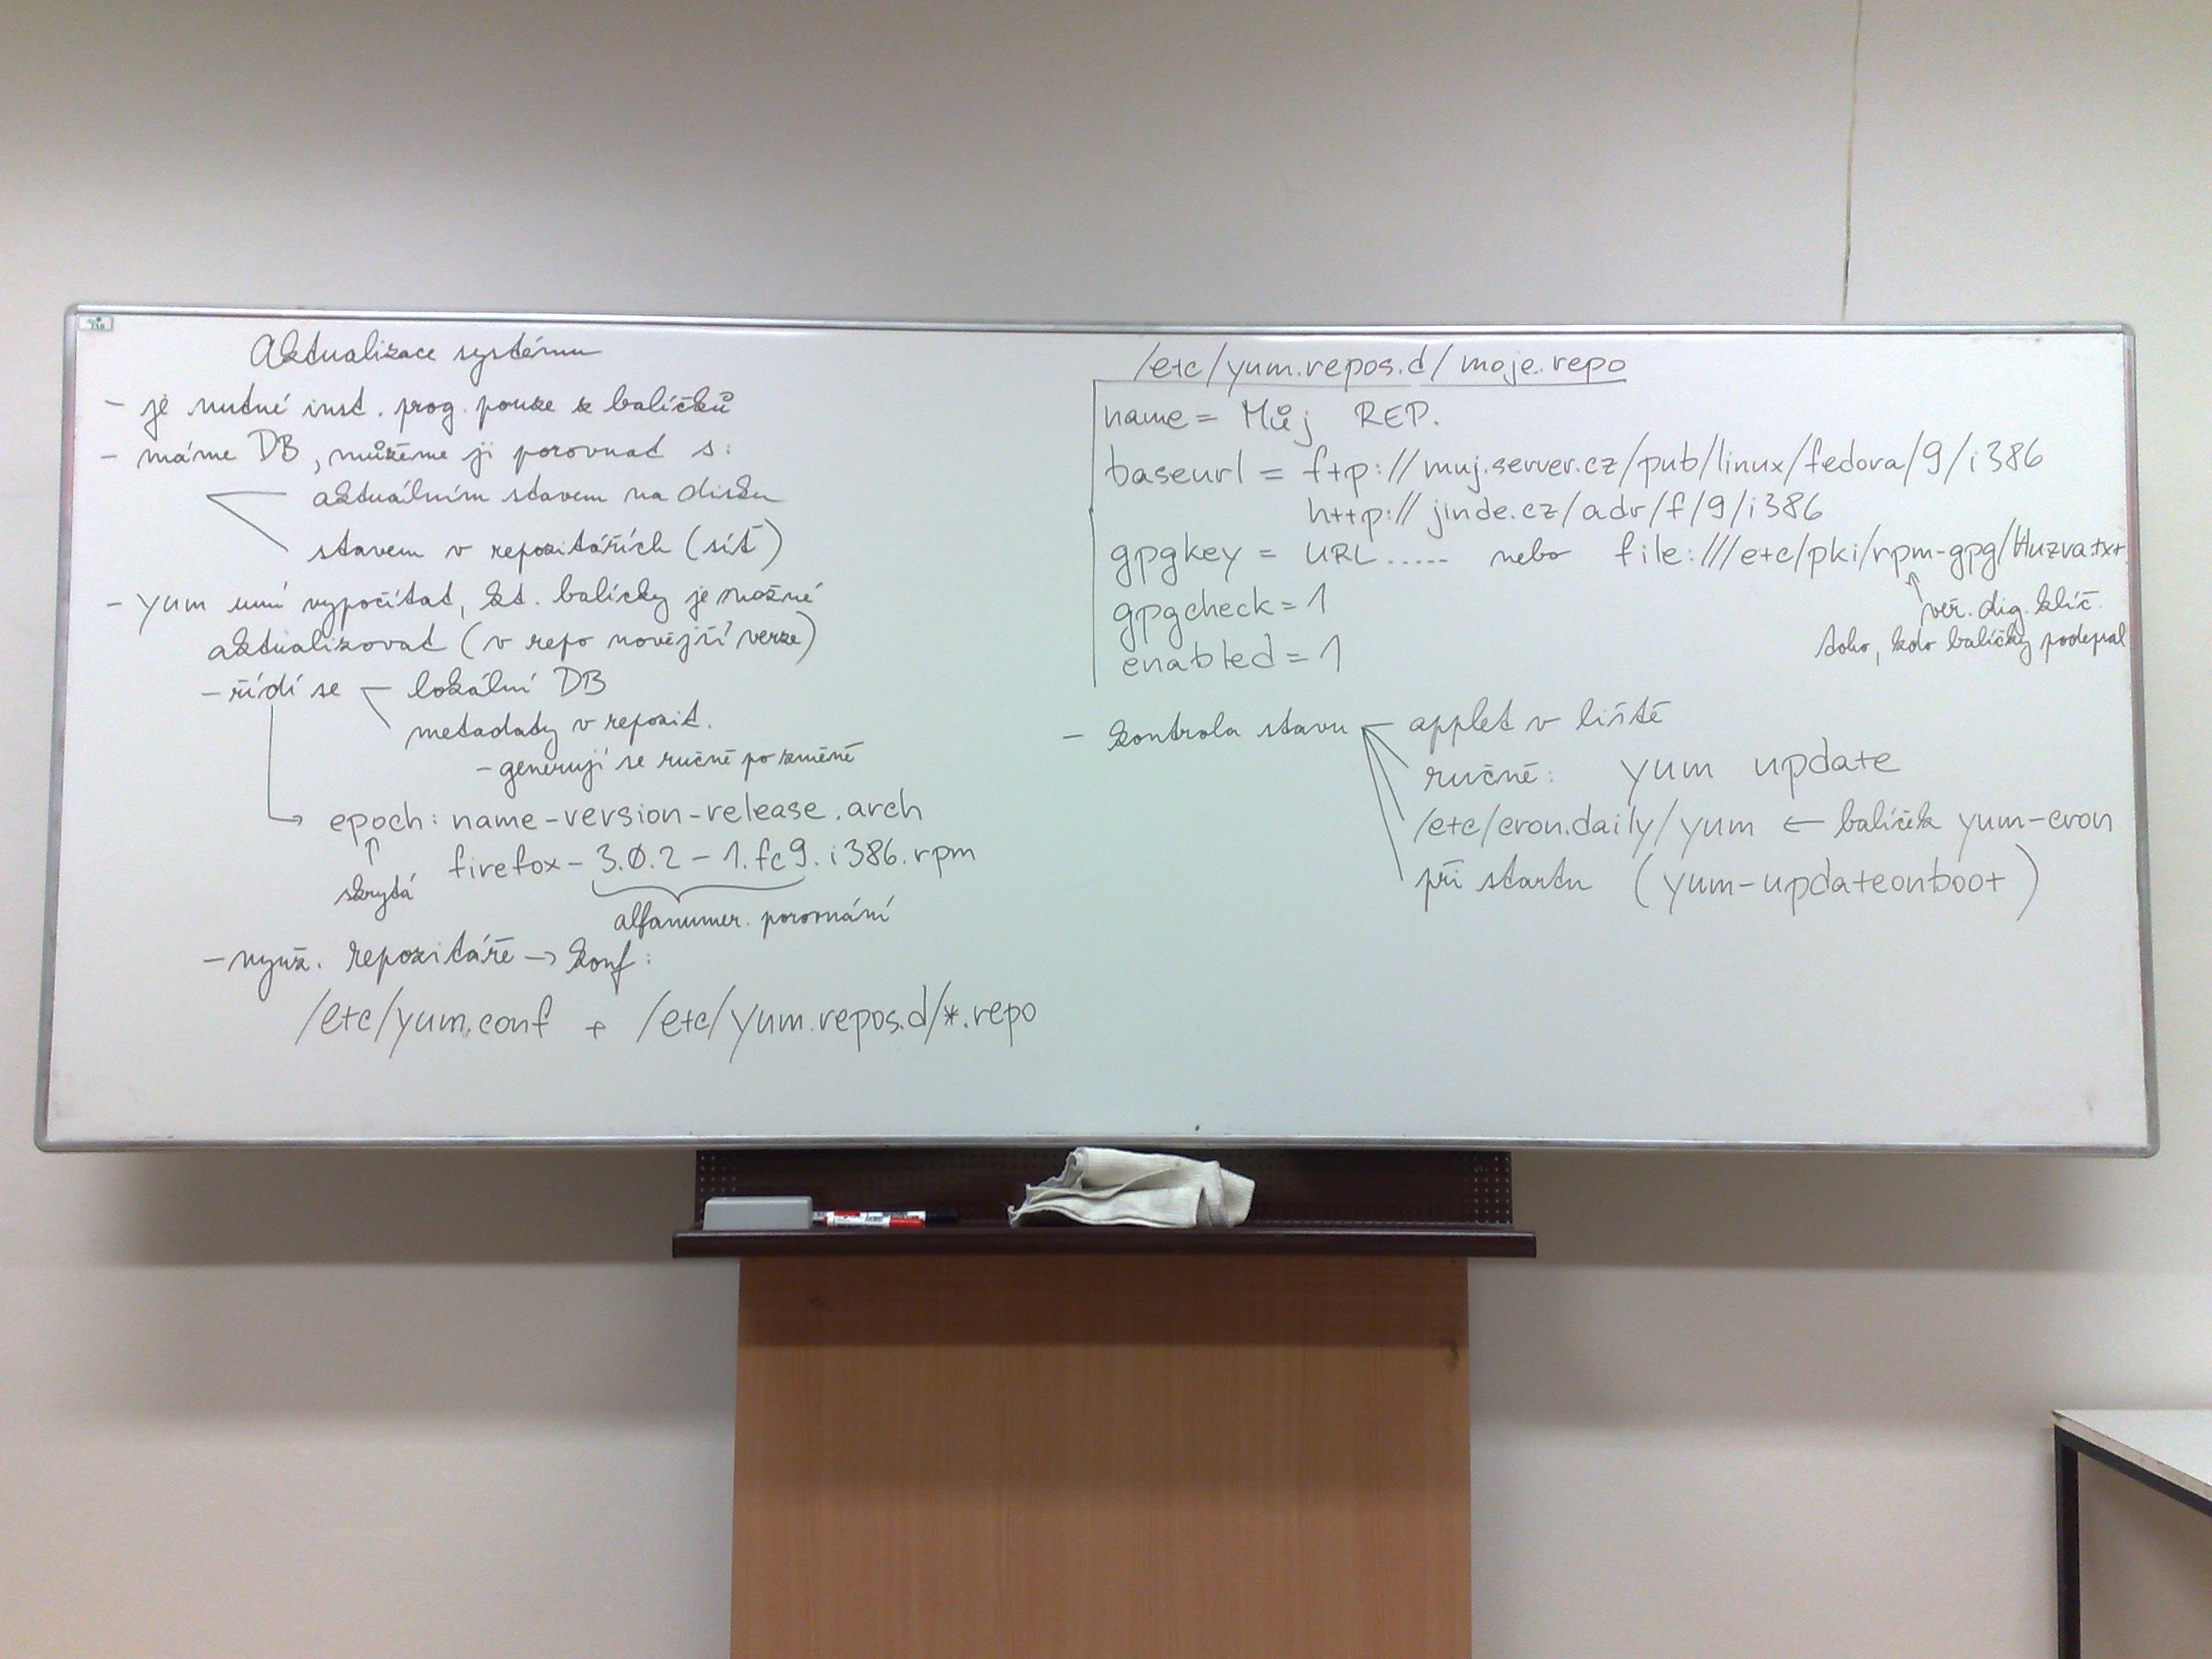 Aktualizace systému
- je nutné inst. prog. pouze z balíčků
- máme DB, můžeme ji porovnat s:
aktuálním stavem na disku
stavem v repozitářích (síť)
- yum umí vypočítat, kt. balíčky je možné
aktualizovat (v repo novější verze)
- řídí se ← lokální DB
metadaty v repozit.
- generují se ručně po změně
→ epoch: name-version-release.arch
↑ firefox-3.0.2-1.fc9.i386.rpm
skrytá
alfanumer. porovnání
- využ. repozitáře → konf:
/etc/yum.conf + /etc/yum.repos.d/*.repo
/etc/yum.repos.d/moje.repo
name = Můj REP.
baseurl = ftp://muj.server.cz/pub/linux/fedora/9/i386
http://jinde.cz/adr/f/9/i386
gpgkey = URL ..... nebo file:///etc/pki/rpm-gpg/
gpgcheck=1
veř. dig. klíč
toho, kdo balíčky podepsal
enabled=1
- kontrola stavu ← applet v liště
ručně: yum update
/etc/cron.daily/yum ← balíček yum-cron
při startu (yum-updateonboot)